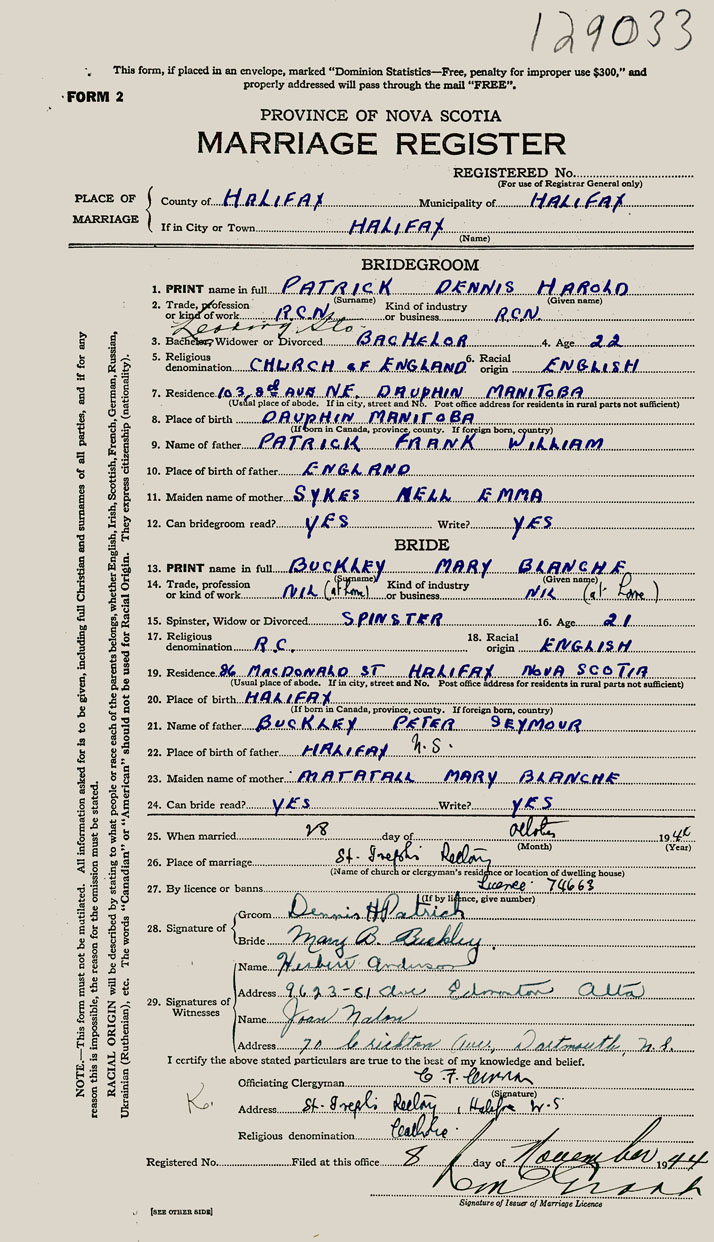 129033
This form, if placed in an envelope, marked "Dominion Statistics—Free, penalty for improper use $300," and
properly addressed will pass through the mail "FREE".
FORM 2
PROVINCE OF NOVA SCOTIA
MARRIAGE REGISTER
REGISTERED No.
(For use of Registrar General only)
PLACE OF MARRIAGE
County of HALIFAX Municipality of HALIFAX
If in City or Town HALIFAX
(Name)
BRIDEGROOM
1. PRINT name in full PATRICK DENNIS HAROLD
(Surname) (Given name)
2. Trade, profession or kind of work R.C.N. Kind of industry or business RCN.
Leading Sto
3. Bachelor, Widower or Divorced BACHELOR 4. Age 22
5. Religious denomination CHURCH OF ENGLAND 6. Racial origin ENGLISH
7. Residence 103, 8d AVE N.E. DAUPHIN MANITOBA
(Usual place of abode. If in city, street and No. Post office address for residents in rural parts not sufficient)
8. Place of birth DAUPHIN MANITOBA
(If born in Canada, province, county. If foreign born, country)
9. Name of father PATRICK FRANK WILLIAM
10. Place of birth of father ENGLAND
11. Maiden name of mother SYKES NELL EMMA
12. Can bridegroom read? YES Write? YES
BRIDE
13. PRINT name in full BUCKLEY MARY BLANCHE
(Surname) (Given name)
14. Trade, profession or kind of work NIL (at home) Kind of industry or business NIL (at home)
15. Spinster, Widow or Divorced SPINSTER 16. Age 21
17. Religious denomination R.C. 18. Racial origin ENGLISH
19. Residence 86 MACDONALD ST HALIFAX NOVA SCOTIA
(Usual place of abode. If in city, street and No. Post office address for residents in rural parts not sufficient)
20. Place of birth HALIFAX
(If born in Canada, province, county. If foreign born, country)
21. Name of father BUCKLEY PETER SEYMOUR
22. Place of birth of father HALIFAX N.S.
23. Maiden name of mother MATATALL MARY BLANCHE
24. Can bride read? YES Write? YES
25. When married 28 day of October 1944
(Month) (Year)
26. Place of marriage St. Joseph's Rectory
(Name of church or clergyman's residence or location of dwelling house)
27. By licence or banns Licence 74663
(If by licence, give number)
28. Signature of
Groom Dennis H Patrick
Bride Mary B. Buckley.
29. Signatures of Witnesses
Name Herbert Anderson
Address 9623-81 Ave Edmonton Alta
Name Joan Nolan
Address 70 Crichton Ave, Dartmouth, N.S.
I certify the above stated particulars are true to the best of my knowledge and belief.
Officiating Clergyman C. F. Curran
(Signature)
Address St. Joseph's Rectory, Halifax N.S
K.
Religious denomination Catholic
Registered No. Filed at this office 8 day of November 1944
Signature of Issuer of Marriage Licence
[SEE OTHER SIDE]
NOTE.—This form must not be mutilated. All information asked for is to be given, including full Christian and surnames of all parties, and if for any
reason this is impossible, the reason for the omission must be stated.
RACIAL ORIGIN will be described by stating to what people or race each of the parents belongs, whether English, Irish, Scottish, French, German, Russian,
Ukrainian (Ruthenian), etc. The words "Canadian" or "American" should not be used for Racial Origin. They express citizenship (nationality).